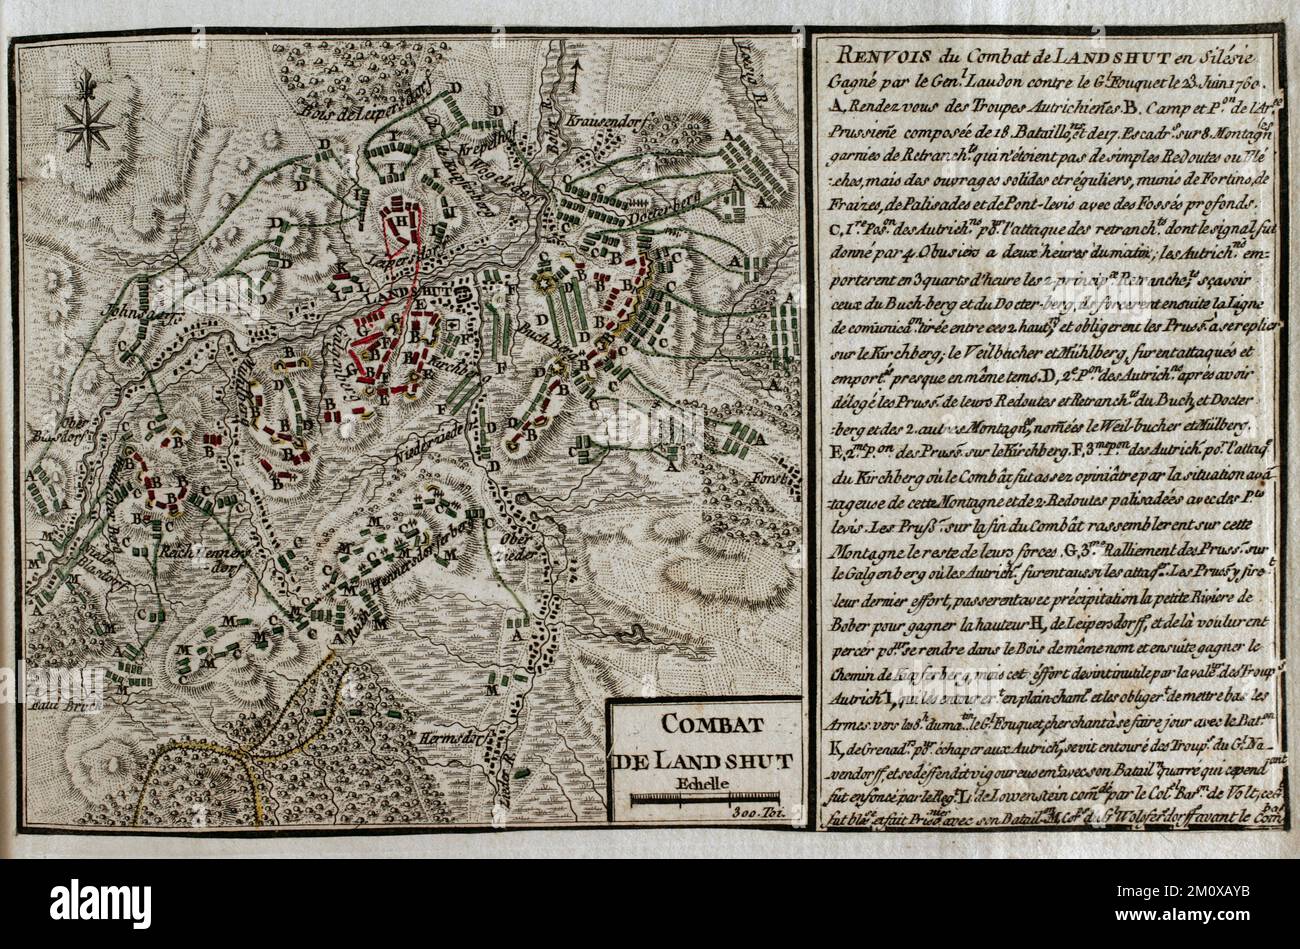 RENVOIS du Combat de LANDSHUT en Silésie
Gagné par le Gen.l Laudon contre le G.l Fouquet le 23 Juin 1760.
A, Rendez vous des Troupes Autrichieñes. B. Camp et P.on de l'Ar.ée
Prussieñe composée de 18. Bataillo.ns et de 17. Escadr.s sur 8. Montagn.es
garnies de Retranch.ts qui n'étoient pas de simples Redoutes ou Flé
-ches, mais des ouvrages solides et réguliers, munis de Fortins, de
Fraizes, de Palisades et de Pont-levis avec des Fossés profonds.
C, 1.re Pos.on des Autrich.ns p.r l'attaque des retranch.ts dont le signal fut
donné par 4. Obusiers a deux heures du matin; les Autrich.ns em-
porterent en 3 quarts d'heure les 2 princip.x Retranche.ts sçavoir
ceux du Buch-berg et du Docter-berg, ils forcerent ensuite la Ligne
de comunica.on tirée entre ces 2 haut.rs et obligerent les Pruss.s a se replier
sur le Kirchberg; le Veilbucher et Mühlberg, furent attaqués et
emport.és presque en même tems. D, 2.e P.on des Autrich.ns après avoir
délogé les Pruss.s de leurs Redoutes et Retranch.ts du Buch, et Docter-
berg et des 2. autres Montagn.es, nomées le Weil-bucher et Mülberg.
E, 2.me P.on des Pruss.s sur le Kirchberg. F, 3.me pon des Autrich. po.r l'attaq.e
du Kirchberg où le Combât fut assez opiniâtre par la situation avã
-tageuse de cette Montagne et de 2. Redoutes palisadées avec des P.ts
levis. Les Pruß.s sur la fin du Combât rassemblerent sur cette
Montagne le reste de leurs forces. G, 3.me Ralliement des Pruss.s sur
le Galgenberg où les Autrich.s furent aussi les attaq.r. Les Pruss.s y fire.t
leur dernier effort, passerent avec précipitation la petite Riviere de
Bober pour gagner la hauteur H, de Leipersdorff, et de là voulurent
percer po.r se rendre dans le Bois de même nom et ensuite gagner le
Chemin de Kupferberg, mais cet effort devint inutile par la val.r des Troup.s
Autrich.s I, qui les entourer.t en plain cham.p et les obliger.t de mettre bas les
Armes. vers la 8.h du mat.n le G.l Fouquet, cherchant à se faire jour avec le Bat.on
K, de Grenad.rs p.r échaper aux Autrich.s, se vit entouré des Troup.s du G.l Na-
vendorff, et se deffendit vigoureusem.t avec son Batail.n quarré qui cepend.ant
fut enfoncé par le Reg.t L, de Lowenstein com.dé par le Col.l Bar.n de Volt, ce G.l
fut bles.é et fait Prisonier avec son Batail.on M, Cps. du G.l Wolfersdorff avant le Com-
bat
Bois de Lepersdorf
Krausendorf
Bober R.
Lausig R.
Krepelhof
Vogelsdorf
B. de Kupferberg
Docterberg
Lepersdorf
LANDSHUT
Johnsdorf
Galgenberg
Buch Berg
Kirchb.
Ober
Blasdorf
Niederzieder
Forst
Reich Henners
dorf
Nider
Blasdorf
Reich Hennersdorferberg
Ober
Zieder
Hermsdorf
Zieder R.
COMBAT
DE LANDSHUT
Echelle
300. Toi.
alamy
Image ID: 2M0XAYB
www.alamy.com